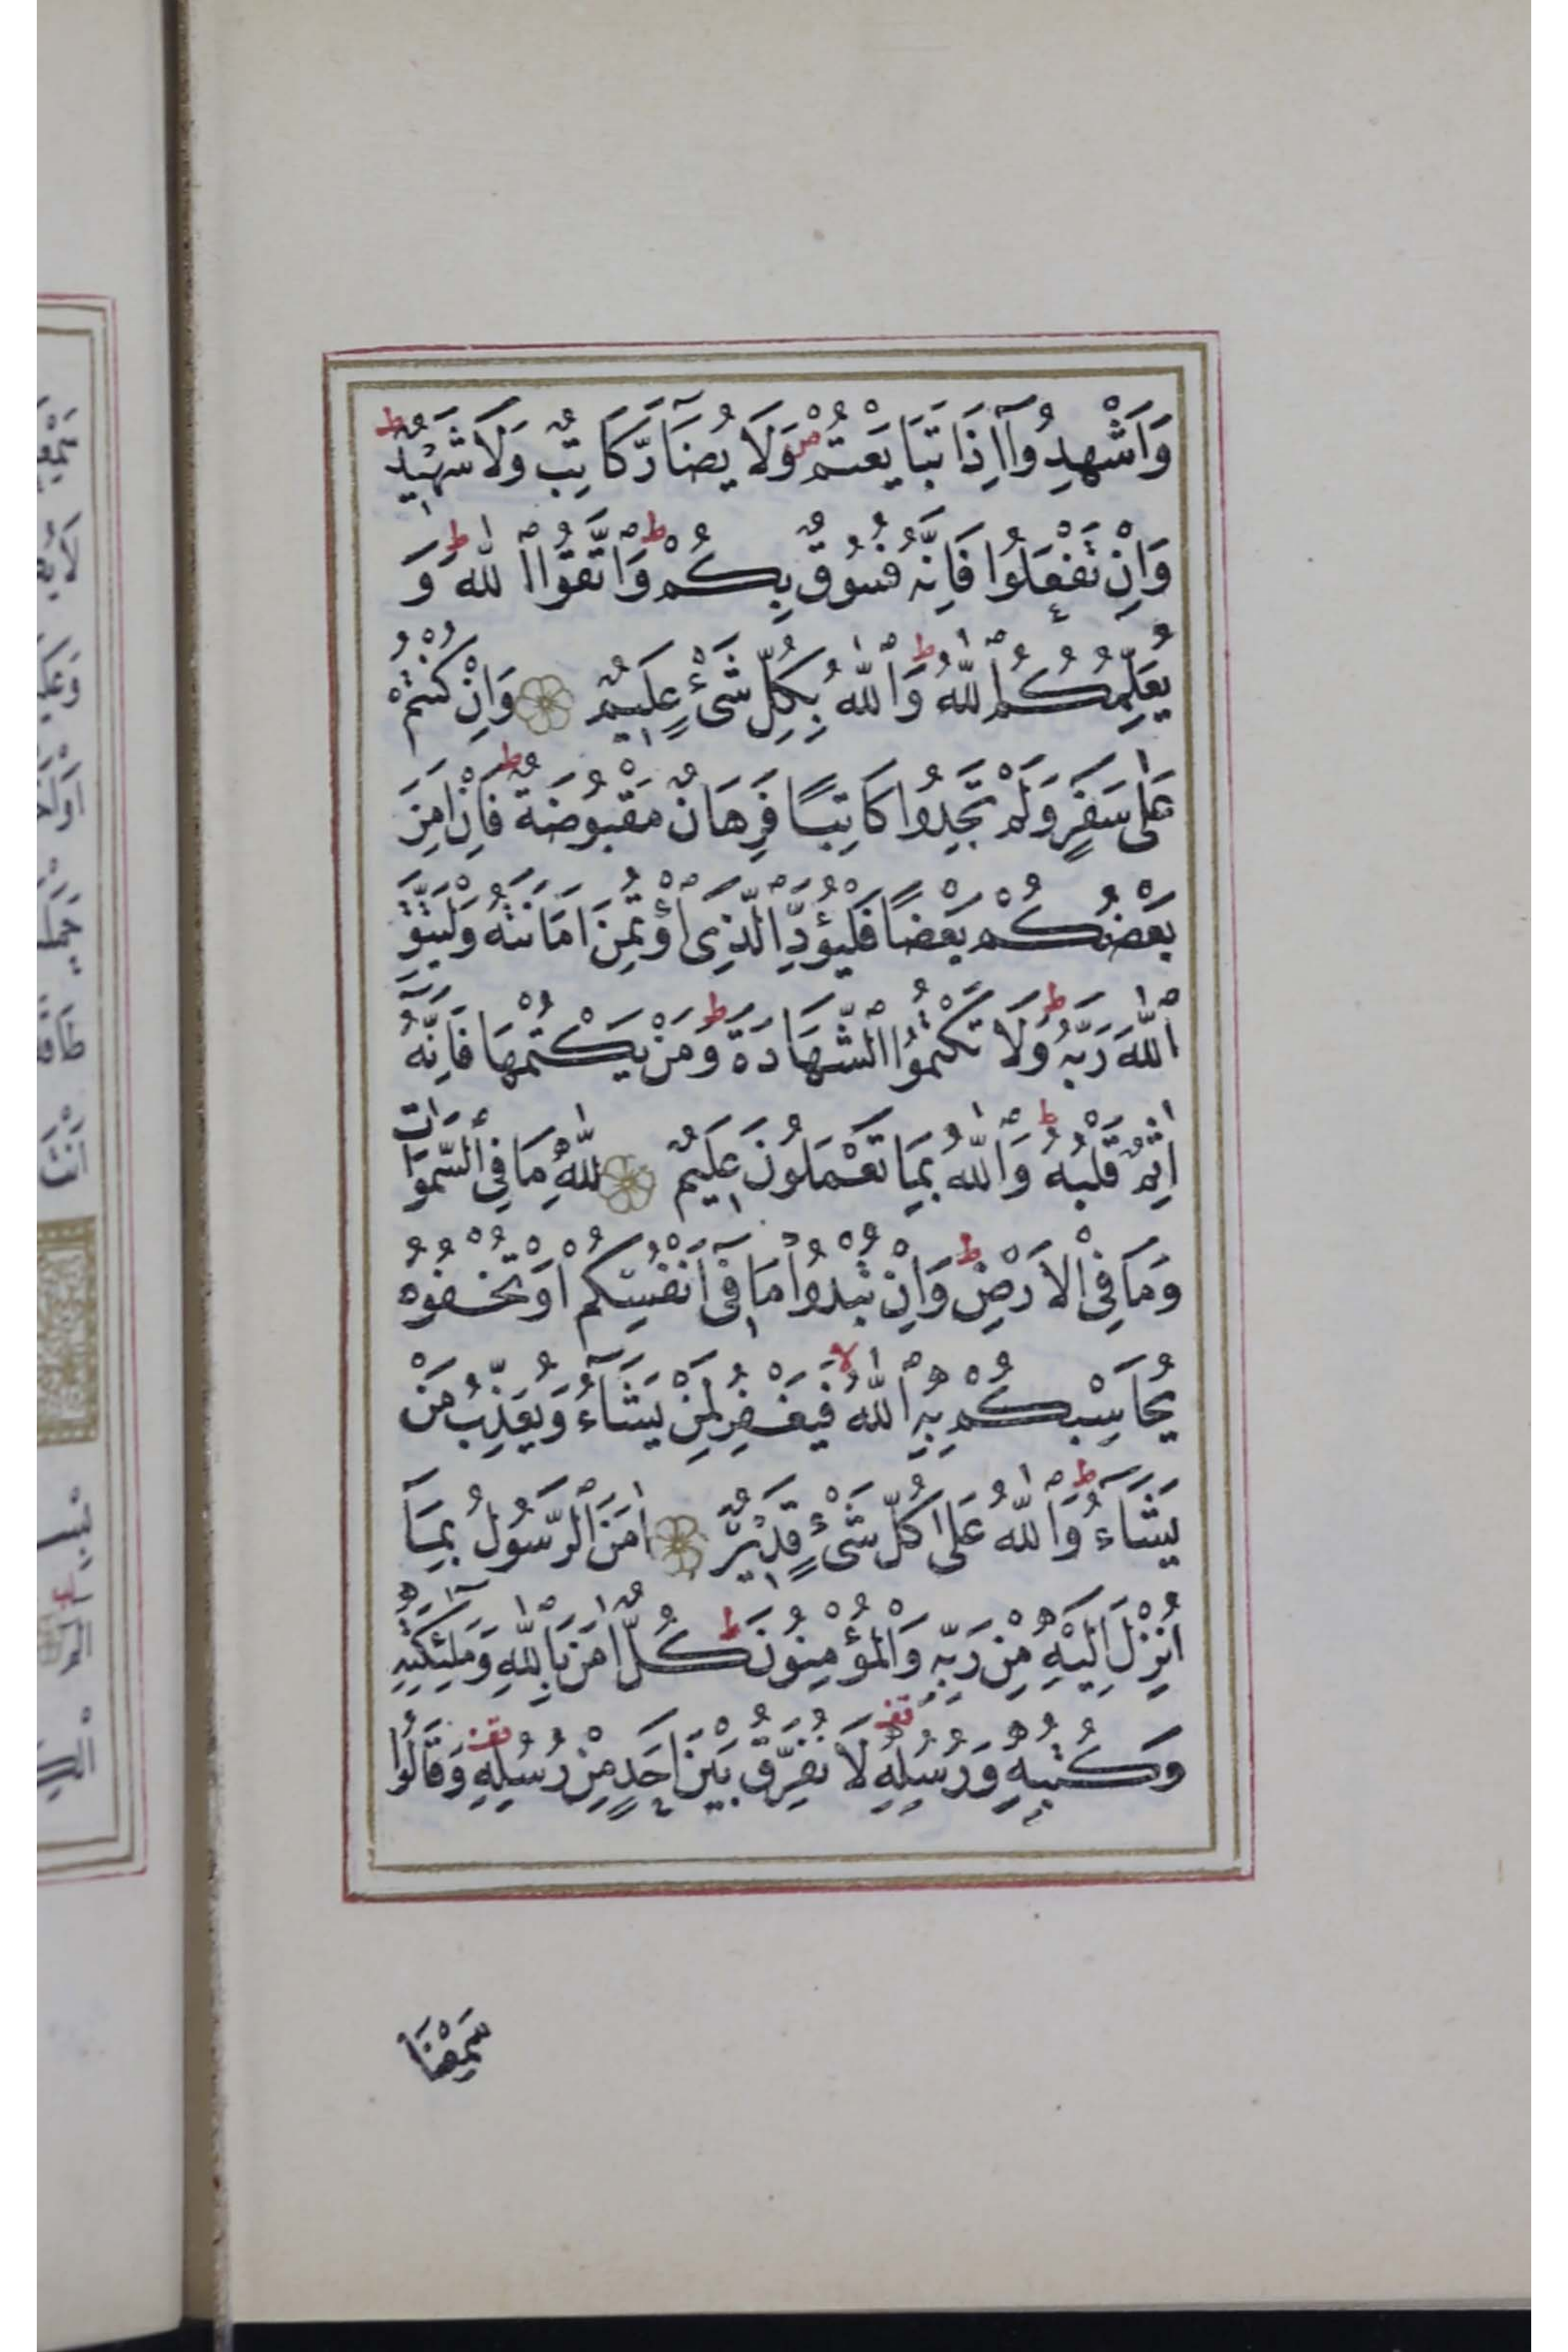 وَاَشْهِدُوٓا اِذَا تَبَايَعْتُمْ ص وَلَا يُضَآرَّ كَاتِبٌ وَلَا شَهٖيدٌ ط
وَاِنْ تَفْعَلُوا فَاِنَّهُ فُسُوقٌ بِكُمْ ط وَاتَّقُوا اللّٰهَ ط وَ
يُعَلِّمُكُمُ اللّٰهُ ط وَاللّٰهُ بِكُلِّ شَیْءٍ عَلٖيمٌ وَاِنْ كُنْتُمْ
عَلٰى سَفَرٍ وَلَمْ تَجِدُوا كَاتِبًا فَرِهَانٌ مَقْبُوضَةٌ ط فَاِنْ اَمِنَ
بَعْضُكُمْ بَعْضًا فَلْيُؤَدِّ الَّذِی اؤْتُمِنَ اَمَانَتَهُ وَلْيَتَّقِ
اللّٰهَ رَبَّهُ ط وَلَا تَكْتُمُوا الشَّهَادَةَ ط وَمَنْ يَكْتُمْهَا فَاِنَّهُٓ
اٰثِمٌ قَلْبُهُ ط وَاللّٰهُ بِمَا تَعْمَلُونَ عَلٖيمٌ لِلّٰهِ مَا فِي السَّمٰوَاتِ
وَمَا فِي الْاَرْضِ ط وَاِنْ تُبْدُوا مَا فٖٓى اَنْفُسِكُمْ اَوْ تُخْفُوهُ
يُحَاسِبْكُمْ بِهِ اللّٰهُ لا فَيَغْفِرُ لِمَنْ يَشَآءُ وَيُعَذِّبُ مَنْ
يَشَآءُ ط وَاللّٰهُ عَلٰى كُلِّ شَیْءٍ قَدٖيرٌ اٰمَنَ الرَّسُولُ بِمَآ
اُنْزِلَ اِلَيْهِ مِنْ رَبِّهٖ وَالْمُؤْمِنُونَ ط كُلٌّ اٰمَنَ بِاللّٰهِ وَمَلٰٓئِكَتِهٖ
وَكُتُبِهٖ وَرُسُلِهٖ قف لَا نُفَرِّقُ بَيْنَ اَحَدٍ مِنْ رُسُلِهٖ قف وَقَالُوا
سَمِعْنَا